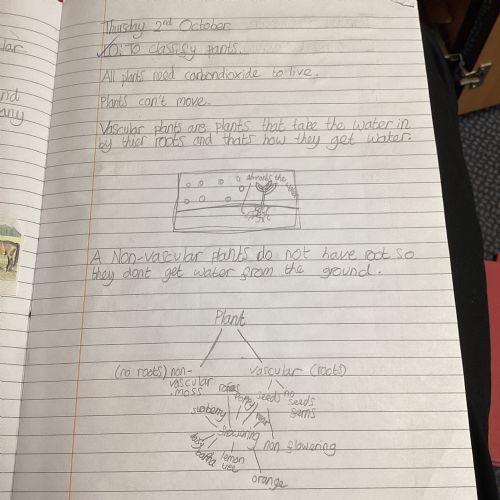 Thursday 2nd October
LO: To classify pants.
All plants need carbondioxide to live.
Plants can't move.
Vascular plants are plants that take the water in
by thier roots and thats how they get water.
the
A Non-vascular plants do not have root so
they dont get water from the ground.
Plant
(no roots) non-
vascular
moss
vascular (roots)
seeds
no
seeds
poppy
flowering
non flowering
lemon
tree
orange